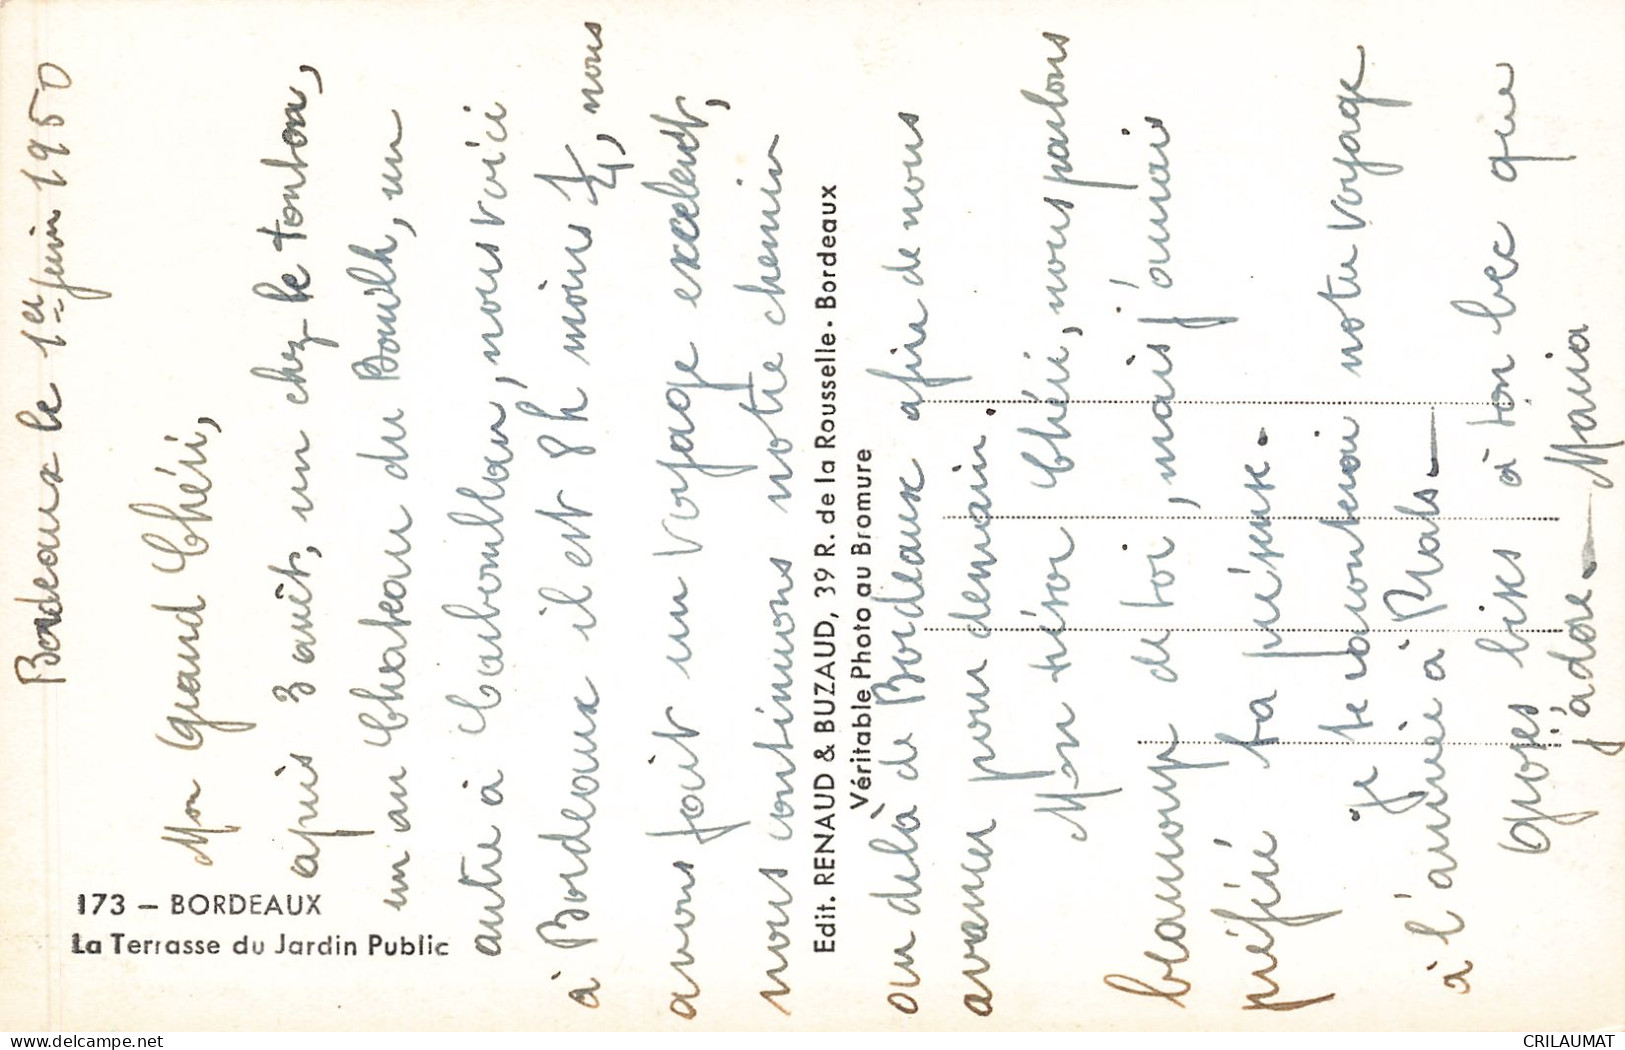 Bordeaux le 1er juin 1950
Mon Grand Chéri,
après 3 arrêts, un chez le tonton,
un au Chateau du Bouilh, un
autre à Cazoulhan, nous voici
à Bordeaux il est 8h moins 1/4, nous
avons fait un voyage excelent,
nous continuons notre chemin
au delà de Bordeaux afin de nous
avancer pour demain.
Mon trésor Chéri, nous parlons
beaucoup de toi, mais j'aurais
préféré ta présence.
je te raconterai notre voyage
à l'arrivée à
Gros bises à ton bec que
j'adore — Maria
173 - BORDEAUX
La Terrasse du Jardin Public
Edit. RENAUD & BUZAUD, 39 R. de la Rousselle - Bordeaux
Véritable Photo au Bromure
delcampe.net
CRILAUMAT